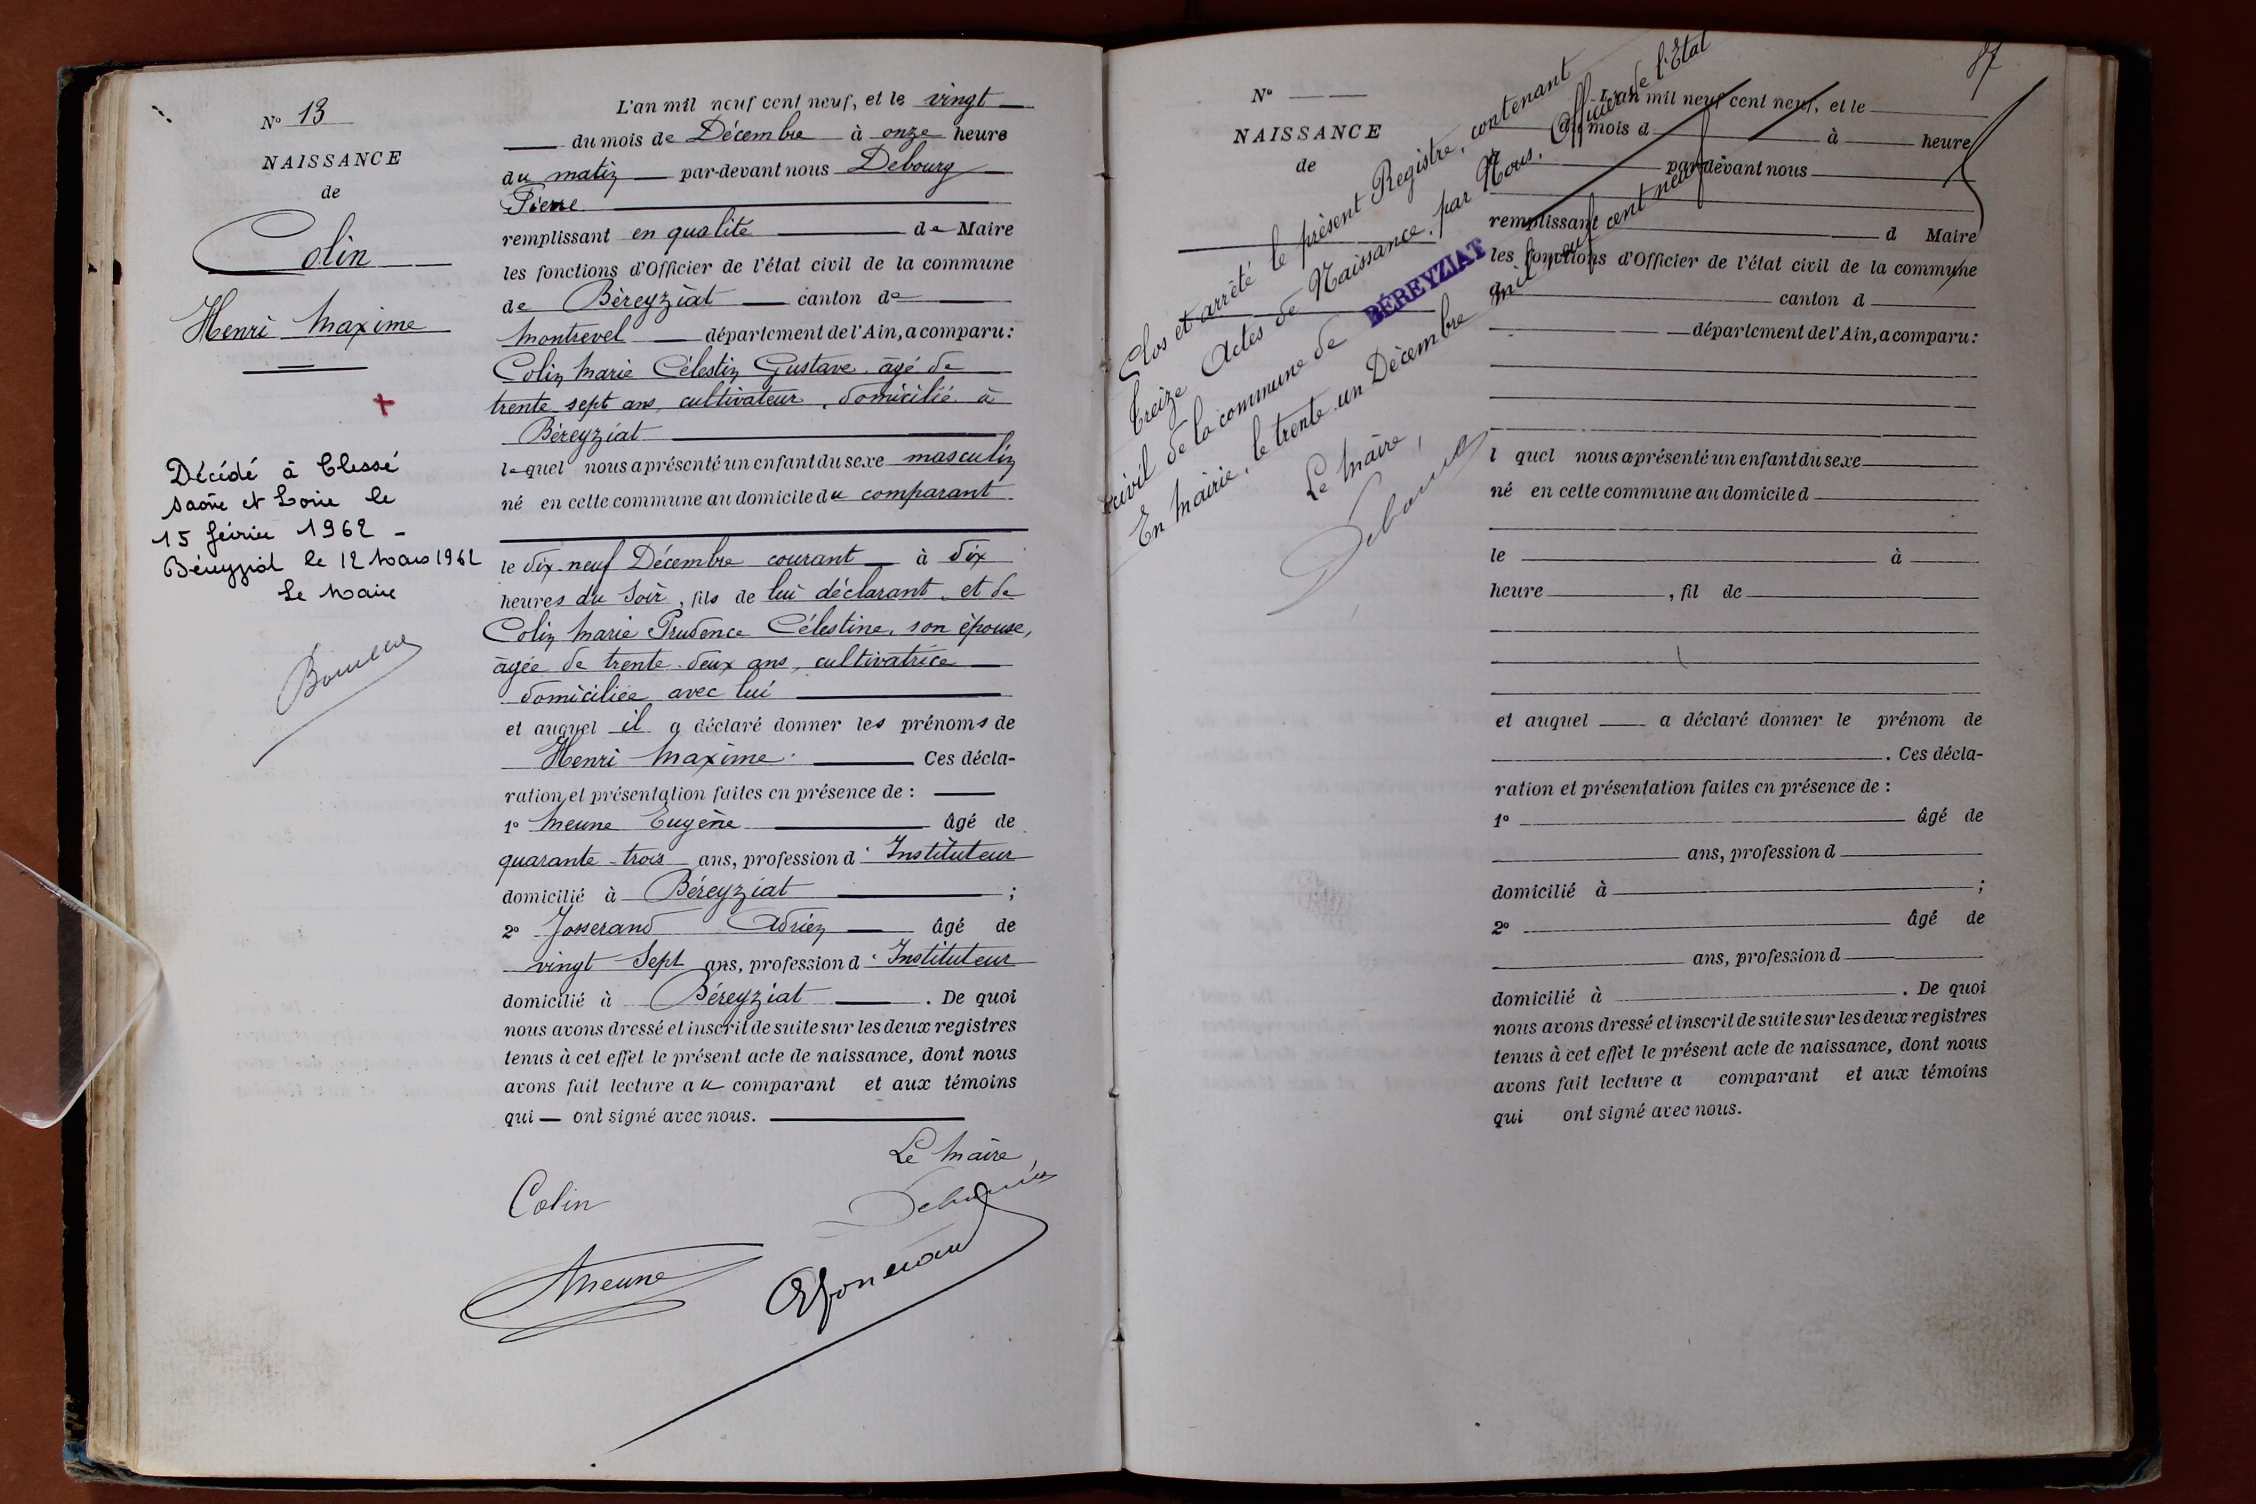 N° 13
NAISSANCE
de
Colin
Henri Maxime
Décédé à Clessé
Saône et Loire le
15 février 1962 -
Béreyziat le 12 Mars 1962
Le Maire
L'an mil neuf cent neuf, et le vingt
du mois de Décembre à onze heure
du matin par-devant nous Debourg
Pierre
remplissant en qualité de Maire
les fonctions d'Officier de l'état civil de la commune
de Béreyziat canton de
Montrevel département de l'Ain, a comparu:
Colin Marie Célestin Gustave, âgé de
trente sept ans, cultivateur, domicilié à
Béreyziat
lequel nous a présenté un enfant du sexe masculin
né en cette commune au domicile du comparant
le dix-neuf Décembre courant à dix
heures du soir, fils de lui déclarant et de
Colin Marie Prudence Célestine, son épouse,
âgée de trente-deux ans, cultivatrice
domiciliée avec lui
et auquel il a déclaré donner les prénoms de
Henri Maxime. Ces décla-
ration et présentation faites en présence de :
1° Meune Eugène âgé de
quarante-trois ans, profession d'Instituteur
domicilié à Béreyziat ;
2° Josserand Adrien âgé de
vingt Sept ans, profession d'Instituteur
domicilié à Béreyziat . De quoi
nous avons dressé et inscrit de suite sur les deux registres
tenus à cet effet le présent acte de naissance, dont nous
avons fait lecture au comparant et aux témoins
qui — ont signé avec nous.
Le Maire
Colin
Debourg
Meune
87
N°
NAISSANCE
de
Clos et arrêté le présent Registre, contenant
treize Actes de Naissance, par Nous, Officier de l'Etat
civil de la commune de BÉREYZIAT
En Mairie, le trente un Décembre mil neuf cent neuf
Le Maire,
Debourg
L'an mil neuf cent neuf, et le
du mois d à heure
par-devant nous
remplissant d Maire
les fonctions d'Officier de l'état civil de la commune
d canton d
département de l'Ain, a comparu:
l quel nous a présenté un enfant du sexe
né en cette commune au domicile d
le à
heure , fil de
et auquel a déclaré donner le prénom de
. Ces décla-
ration et présentation faites en présence de :
1° âgé de
ans, profession d
domicilié à ;
2° âgé de
ans, profession d
domicilié à . De quoi
nous avons dressé et inscrit de suite sur les deux registres
tenus à cet effet le présent acte de naissance, dont nous
avons fait lecture a comparant et aux témoins
qui ont signé avec nous.